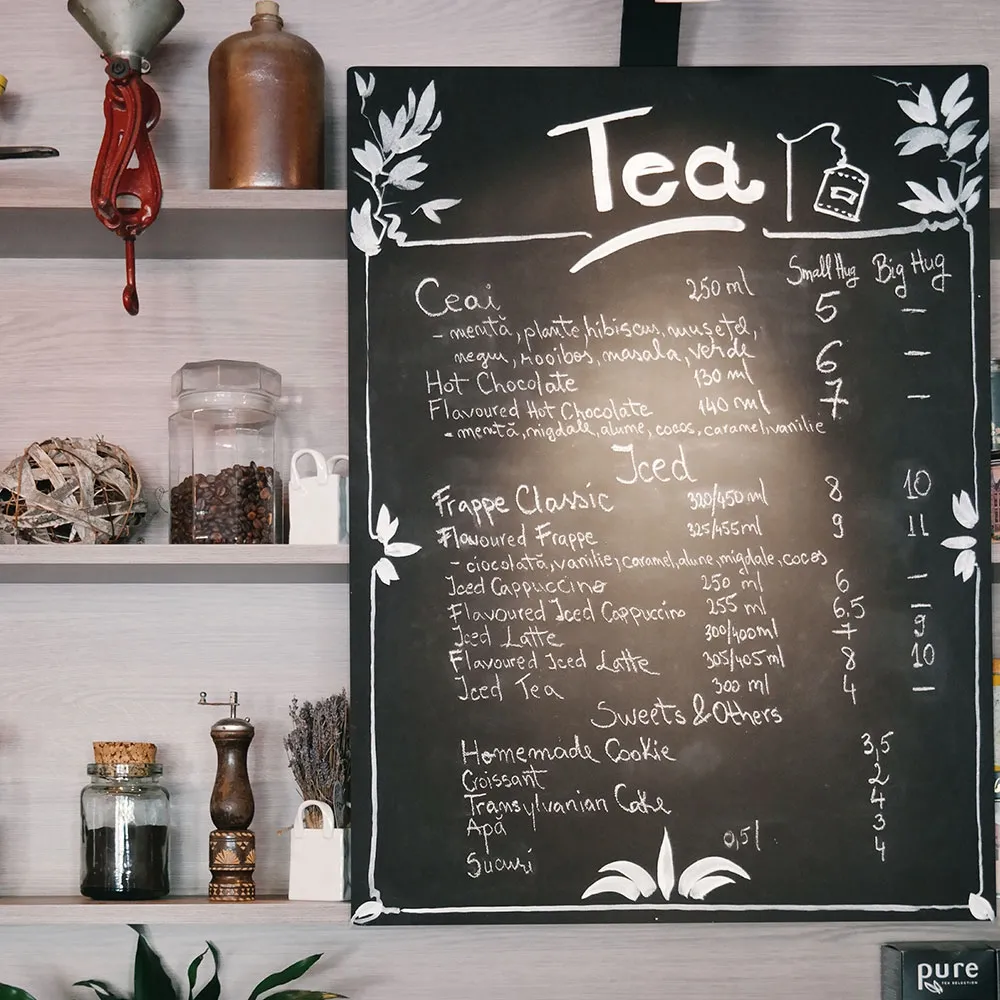 Tea
Small Hug Big Hug
Ceai 250 ml 5 –
- mentă, plante, hibiscus, mușețel,
negru, rooibos, masala, verde
Hot Chocolate 130 ml 6 –
Flavoured Hot Chocolate 140 ml 7 –
- mentă, migdale, alune, cocos, caramel, vanilie
Iced
Frappe Classic 320/450 ml 8 10
Flavoured Frappe 325/455 ml 9 11
- ciocolată, vanilie, caramel, alune, migdale, cocos
Iced Cappuccino 250 ml 6 –
Flavoured Iced Cappuccino 255 ml 6.5 –
Iced Latte 300/400 ml 7 9
Flavoured Iced Latte 305/405 ml 8 10
Iced Tea 300 ml 4 –
Sweets & Others
Homemade Cookie 3,5
Croissant 2
Transylvanian Cake 4
Apă 3
Sucuri 0,5 l 4
pure
TEA SELECTION